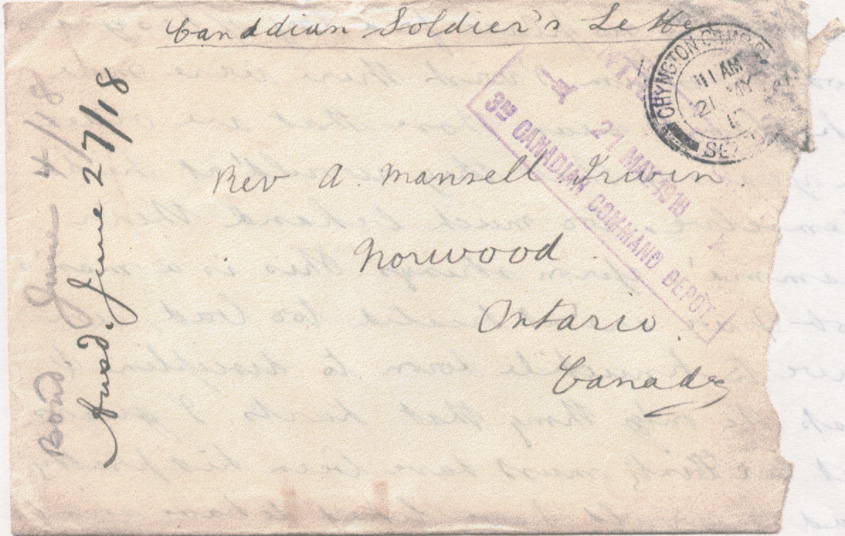 Canadian Soldier's Letter
CHYNGTON CAMP
11 AM
21 MY
SEA
3RD CANADIAN COMMAND DEPOT
MAY 1918
Rev A. Mansell Irwin
Norwood
Ontario
Canada
June 4/18
Answd. June 27/18